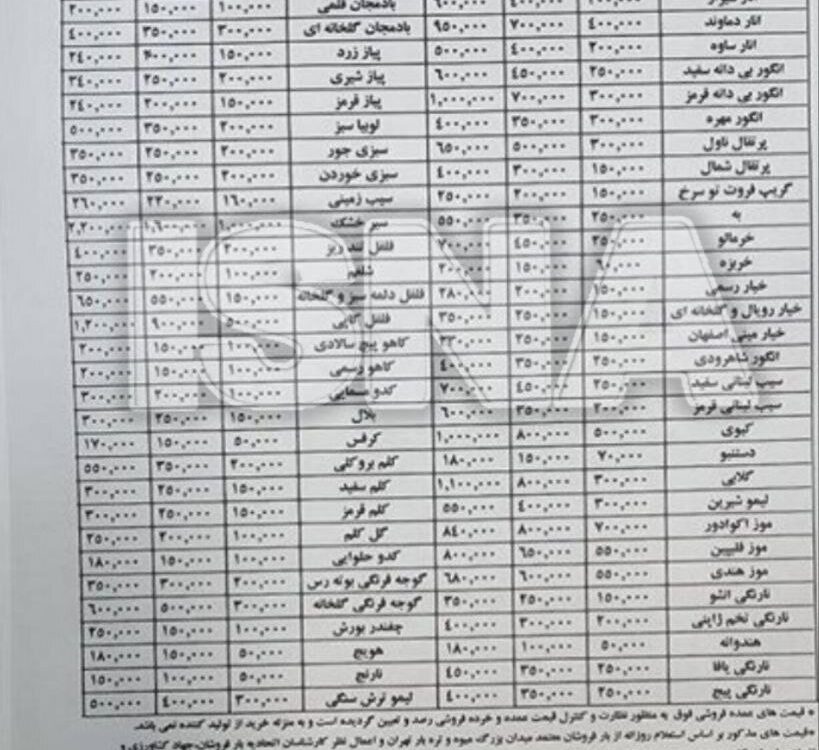 انار شیراز ۲۰۰,۰۰۰ ۴۰۰,۰۰۰ ۶۰۰,۰۰۰ بادمجان قلمی ۱۰۰,۰۰۰ ۱۵۰,۰۰۰ ۲۰۰,۰۰۰
انار دماوند ۴۰۰,۰۰۰ ۷۰۰,۰۰۰ ۹۵۰,۰۰۰ بادمجان گلخانه ای ۳۰۰,۰۰۰ ۳۵۰,۰۰۰ ۴۰۰,۰۰۰
انار ساوه ۲۰۰,۰۰۰ ۴۰۰,۰۰۰ ۵۰۰,۰۰۰ پیاز زرد ۱۵۰,۰۰۰ ۲۰۰,۰۰۰ ۲۴۰,۰۰۰
انگور بی دانه سفید ۲۵۰,۰۰۰ ۴۵۰,۰۰۰ ۶۰۰,۰۰۰ پیاز شیری ۲۰۰,۰۰۰ ۲۵۰,۰۰۰ ۳۴۰,۰۰۰
انگور بی دانه قرمز ۳۰۰,۰۰۰ ۷۰۰,۰۰۰ ۱,۰۰۰,۰۰۰ پیاز قرمز ۱۵۰,۰۰۰ ۲۰۰,۰۰۰ ۲۴۰,۰۰۰
انگور مهره ۳۰۰,۰۰۰ ۳۵۰,۰۰۰ ۴۰۰,۰۰۰ لوبیا سبز ۲۰۰,۰۰۰ ۳۵۰,۰۰۰ ۵۰۰,۰۰۰
پرتقال ناول ۳۰۰,۰۰۰ ۵۰۰,۰۰۰ ۶۵۰,۰۰۰ سبزی جور ۲۰۰,۰۰۰ ۲۵۰,۰۰۰ ۳۵۰,۰۰۰
پرتقال شمال ۱۵۰,۰۰۰ ۳۰۰,۰۰۰ ۴۰۰,۰۰۰ سبزی خوردن ۲۰۰,۰۰۰ ۲۵۰,۰۰۰ ۳۵۰,۰۰۰
گریپ فروت تو سرخ ۱۵۰,۰۰۰ ۲۰۰,۰۰۰ ۲۵۰,۰۰۰ سیب زمینی ۱۶۰,۰۰۰ ۲۲۰,۰۰۰ ۲۶۰,۰۰۰
به ۲۵۰,۰۰۰ ۳۵۰,۰۰۰ ۵۵۰,۰۰۰ سیر خشک ۱,۰۰۰,۰۰۰ ۱,۶۰۰,۰۰۰ ۲,۲۰۰,۰۰۰
خرمالو ۲۵۰,۰۰۰ ۴۵۰,۰۰۰ ۷۰۰,۰۰۰ فلفل تند ریز ۲۰۰,۰۰۰ ۳۵۰,۰۰۰ ۴۰۰,۰۰۰
خربزه ۶۰,۰۰۰ ۱۵۰,۰۰۰ ۲۰۰,۰۰۰ شلغم ۱۰۰,۰۰۰ ۲۰۰,۰۰۰ ۲۵۰,۰۰۰
خیار رسمی ۱۵۰,۰۰۰ ۲۰۰,۰۰۰ ۲۸۰,۰۰۰ فلفل دلمه سبز و گلخانه ۱۵۰,۰۰۰ ۵۵۰,۰۰۰ ۶۵۰,۰۰۰
خیار رویال و گلخانه ای ۱۵۰,۰۰۰ ۲۵۰,۰۰۰ ۳۵۰,۰۰۰ فلفل کاپی ۵۰۰,۰۰۰ ۹۰۰,۰۰۰ ۱,۲۰۰,۰۰۰
خیار مینی اصفهان ۱۵۰,۰۰۰ ۲۵۰,۰۰۰ ۳۳۰,۰۰۰ کاهو پیچ سالادی ۱۰۰,۰۰۰ ۱۵۰,۰۰۰ ۲۰۰,۰۰۰
انگور شاهرودی ۲۵۰,۰۰۰ ۳۵۰,۰۰۰ ۴۰۰,۰۰۰ کاهو رسمی ۱۰۰,۰۰۰ ۱۵۰,۰۰۰ ۲۰۰,۰۰۰
سیب لبنانی سفید ۲۵۰,۰۰۰ ۴۵۰,۰۰۰ ۷۰۰,۰۰۰ کدو مسمایی ۱۰۰,۰۰۰ ۲۰۰,۰۰۰ ۳۰۰,۰۰۰
سیب لبنانی قرمز ۲۰۰,۰۰۰ ۳۵۰,۰۰۰ ۶۰۰,۰۰۰ بلال ۱۵۰,۰۰۰ ۲۵۰,۰۰۰ ۳۰۰,۰۰۰
کیوی ۵۰۰,۰۰۰ ۸۰۰,۰۰۰ ۱,۰۰۰,۰۰۰ کرفس ۵۰,۰۰۰ ۱۵۰,۰۰۰ ۱۷۰,۰۰۰
دستنبو ۷۰,۰۰۰ ۱۵۰,۰۰۰ ۱۸۰,۰۰۰ کلم بروکلی ۲۰۰,۰۰۰ ۳۵۰,۰۰۰ ۵۵۰,۰۰۰
گلابی ۳۰۰,۰۰۰ ۸۰۰,۰۰۰ ۱,۱۰۰,۰۰۰ کلم سفید ۱۵۰,۰۰۰ ۲۵۰,۰۰۰ ۳۰۰,۰۰۰
لیمو شیرین ۳۰۰,۰۰۰ ۴۰۰,۰۰۰ ۵۵۰,۰۰۰ کلم قرمز ۱۵۰,۰۰۰ ۲۵۰,۰۰۰ ۳۰۰,۰۰۰
موز اکوادور ۷۰۰,۰۰۰ ۸۰۰,۰۰۰ ۸۴۰,۰۰۰ گل کلم ۱۰۰,۰۰۰ ۲۰۰,۰۰۰ ۲۵۰,۰۰۰
موز فلیپین ۵۵۰,۰۰۰ ۶۵۰,۰۰۰ ۸۰۰,۰۰۰ کدو حلوایی ۱۰۰,۰۰۰ ۱۵۰,۰۰۰ ۱۸۰,۰۰۰
موز هندی ۵۵۰,۰۰۰ ۶۰۰,۰۰۰ ۶۸۰,۰۰۰ گوجه فرنگی بوته رس ۲۰۰,۰۰۰ ۳۰۰,۰۰۰ ۳۵۰,۰۰۰
نارنگی انشو ۱۵۰,۰۰۰ ۲۵۰,۰۰۰ ۳۵۰,۰۰۰ گوجه فرنگی گلخانه ۳۰۰,۰۰۰ ۵۰۰,۰۰۰ ۶۰۰,۰۰۰
نارنگی تخم ژاپنی ۲۰۰,۰۰۰ ۳۰۰,۰۰۰ ۴۰۰,۰۰۰ چغندر بورش ۱۰۰,۰۰۰ ۱۵۰,۰۰۰ ۲۵۰,۰۰۰
هندوانه ۵۰,۰۰۰ ۱۰۰,۰۰۰ ۱۸۰,۰۰۰ هویج ۵۰,۰۰۰ ۱۵۰,۰۰۰ ۱۸۰,۰۰۰
نارنگی یافا ۲۵۰,۰۰۰ ۳۵۰,۰۰۰ ۴۵۰,۰۰۰ نارنج ۵۰,۰۰۰ ۱۰۰,۰۰۰ ۱۵۰,۰۰۰
نارنگی پیج ۲۵۰,۰۰۰ ۳۵۰,۰۰۰ ۴۰۰,۰۰۰ لیمو ترش سنگی ۳۰۰,۰۰۰ ۴۰۰,۰۰۰ ۵۰۰,۰۰۰
* قیمت های عمده فروشی فوق به منظور نظارت و کنترل قیمت عمده و خرده فروشی رصد و تعیین گردیده است و به منزله خرید از تولید کننده نمی باشد.
*قیمت های مذکور بر اساس استعلام روزانه از بار فروشان معتمد میدان بزرگ میوه و تره بار تهران و اعمال نظر کارشناسان اتحادیه بار فروشان،جهاد کشاورزی و
ISNA